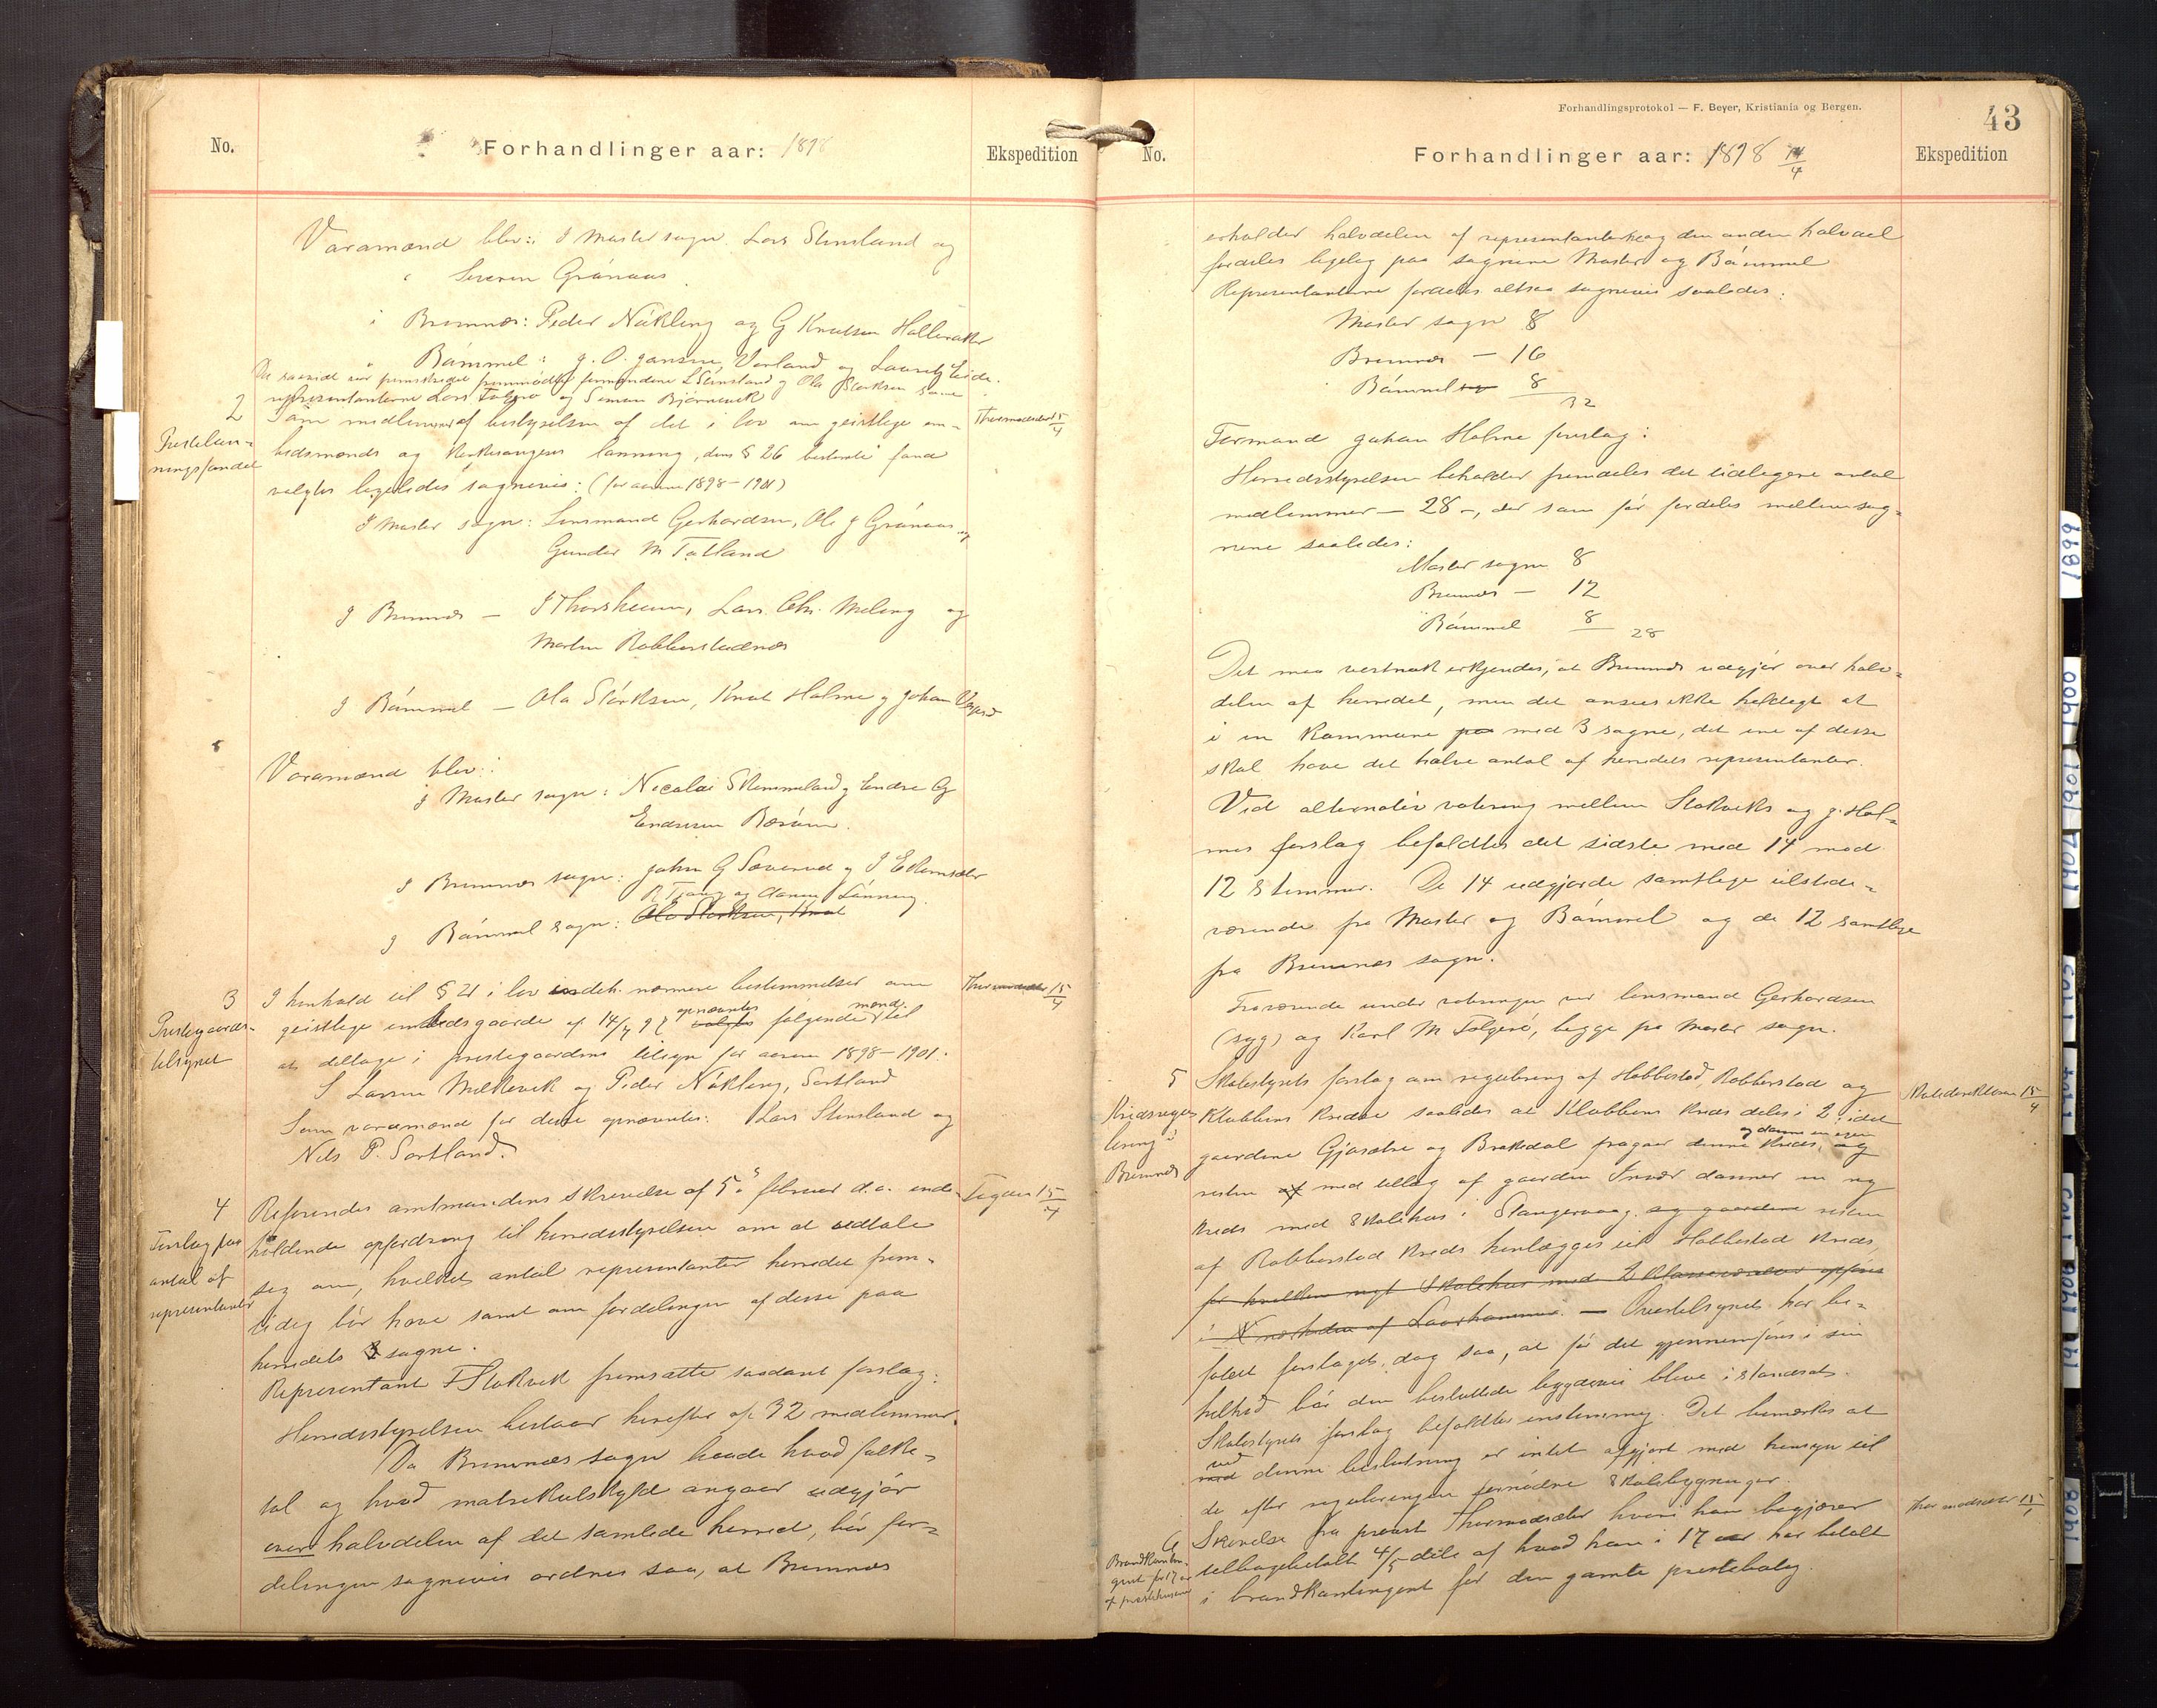 No.
Forhandlinger aar: 1898
Ekspedition
Varamænd blev: I Moster sogn. Lars Stensland og
Severin Grönaas
i Bremnes: Peder Nökling og G Knutsen Halleraker
" Bömmel: J. O. Jansen, Vorland og Laurits Eide.
representanterne Lars Folgerø og Simon Björnevik samt
2
Som medlemmer af bestyrelsen af det i lov om geistlige em-
Thormodsæter 15/4
Presteløn-
ningsfondet
bedsmænds og kirkesangeres lønning, dens § 26 bestemte fond
valgtes ligeledes sognevis: (for aarene 1898-1901)
I Moster sogn: Lensmand Gerhardsen, Ole J Grönaas og
Gunder M Totland
I Bremnes — I Thorsheim, Lars Chr. Meling og
Martin Robberstadnes
I Bömmel — Ola Störksen, Knut Holme og Johan
Varamænd blev:
I Moster sogn: Nicolai Stemmeland og Endre Og
Endresen
I Bremnes sogn: John G Sæverud og
R Trang og Lönning.
I Bömmel sogn: Ola Störksen, Knut
3
I henhold til § 21 i lov indeh. nærmere bestemmelser om
15/4
Prestegaards-
tilsynet
geistlige embedsgaarde af 14/7 97 valgtes opnævntes følgende mænd til
at deltage i prestegaardens tilsyn for aarene 1898-1901.
S Larsen Melkevik og Peder Nökling, Sortland
Som varamænd for disse opnævntes: Lars Stensland og
Nils P. Sortland.
4
Refereredes amtmandens skrivelse af 5. februar d.a. inde-
15/4
Forslag paa
antal af
representanter
holdende opfordring til herredsstyrelsen om at udtale
sig om, hvilket antal representanter herredet frem-
tidig bör have samt om fordelingen af disse paa
herredets 3 sogne.
Representant Stokvik fremsatte saadant forslag:
Herredsstyrelsen bestaar herefter af 32 medlemmer.
Da Bremnes sogn baade hvad folke-
tal og hvad matrikulskyld angaar udgjör
over halvdelen af det samlede herred, bör for-
delingen sognevis ordnes saa, at Bremnes
Forhandlingsprotokol — F. Beyer, Kristiania og Bergen.
43
No.
Forhandlinger aar: 1898 14/4
Ekspedition
erholder halvdelen af representanterne og den anden halvdel
fordeles ligelig paa sognene Moster og Bömmel
Representanterne fordeles altsaa sognevis saaledes:
Moster sogn 8
Bremnes — 16
Bömmel sogn 8
32
Formand Johan Holme foreslog:
Herredsstyrelsen beholder fremdeles det tidligere antal
medlemmer — 28 —, der som för fordeles mellem sog-
nene saaledes:
Moster sogn 8
Bremnes — 12
Bömmel 8
28
Det maa vistnok erkjendes, at Bremnes udgjör over halv-
delen af herredet, men det ansees ikke heldigt at
i en kommune paa med 3 sogne, det ene af disse
skal have det halve antal af herredets representanter.
Ved alternativ votering mellem Stokviks og J. Hol-
mes forslag befaldtes det sidste med 14 mod
12 stemmer. De 14 udgjorde samtlige tilstede-
værende fra Moster og Bömmel og de 12 samtlige
fra Bremnes sogn.
Fraværende under voteringen var lensmand Gerhardsen
(syg) og Karl M Folgerö, begge fra Moster sogn.
5
Skolestyrets forslag om regulering af Hobbestad, Robberstad og
Skoledirektøren 15/4
Kredsregu-
lering i
Bremnes
Klubbens kredse saaledes at Klubbens kreds deles i 2, idet
gaardene Gjosæter og Brakedal fragaar denne kreds, og og danne en egen
resten af med tillæg af gaarden Innvær danner en ny
kreds med skolehus i Stangervaag. og gaardene resten
af Robberstad kreds henlægges til Hobbestad kreds,
for hvilken nyt skolehus med 2 klasseværelser opföres
i nærheden af Laurhammer. — Överstilsynet har be-
faldt forslaget, dog saa, at för det gjennemföres i sin
helhed bör den besluttede byggeri blive istandsat.
Skolestyrets forslag befaldtes enstemmig. Det bemærkes at
med ved denne beslutning er intet afgjort med hensyn til
de efter reguleringen fornödne skolebygninger.
6
Skrivelse fra provst Thormodsæter hvori han begjærer
Thormodsæter 15/4
Brandkontin-
gent for 17 aar
af prestehusene
tilbagebetalt 4/5 dele af hvad han i 17 aar har betalt
i brandkontingent for den gamle prestebolig.
1899
1900
1901 1902
1908